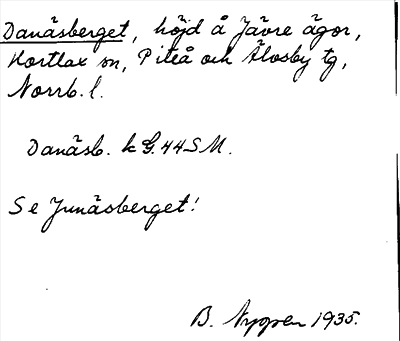 Danäsberget, höjd å Jävre ägor,
Hortlax sn, Piteå och Älvsby tg,
Norrb. l.
Danäsb. k G. 44 S M.
Se Junäsberget!
B. Nygren 1935.